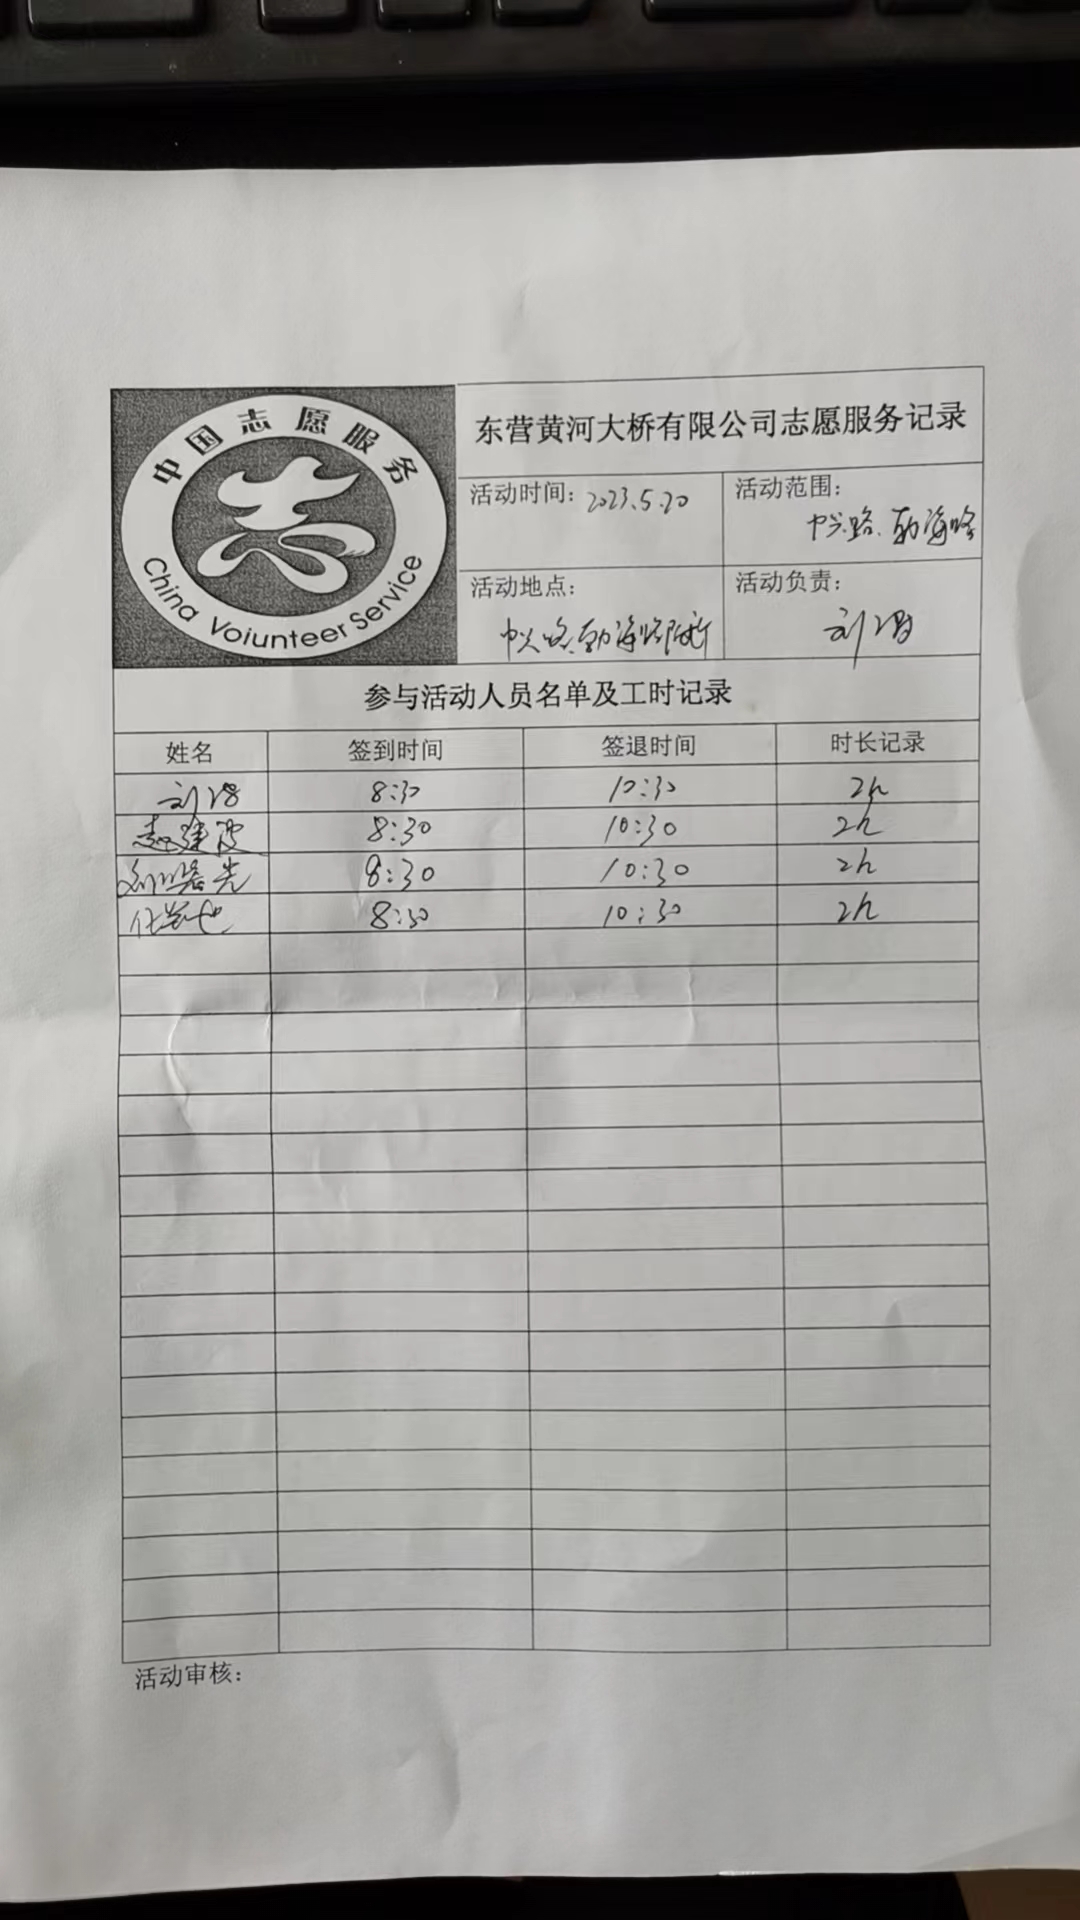 中国志愿服务
China Voiunteer Service
东营黄河大桥有限公司志愿服务记录
活动时间：2023.5.20
活动范围：
路.勃海路
活动地点：
路.勃海路附近
活动负责：
刘
参与活动人员名单及工时记录
姓名 签到时间 签退时间 时长记录
刘 8:30 10:30 2h
赵建波 8:30 10:30 2h
8:30 10:30 2h
8:30 10:30 2h
活动审核：